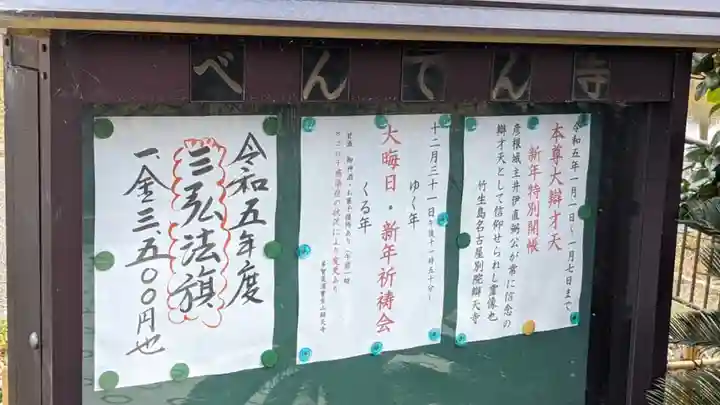 べんてん寺
令和五年一月一日～一月七日まで
本尊大辯才天
新年特別開帳
彦根城主井伊直弼公が常に信念の
辯才天として信仰せられし霊像也
竹生島名古屋別院辯天寺
十二月三十一日午後十一時五十分～
ゆく年
大晦日・新年祈祷会
くる年
令和五年度
三弘法旗
一、金三、五〇〇円也